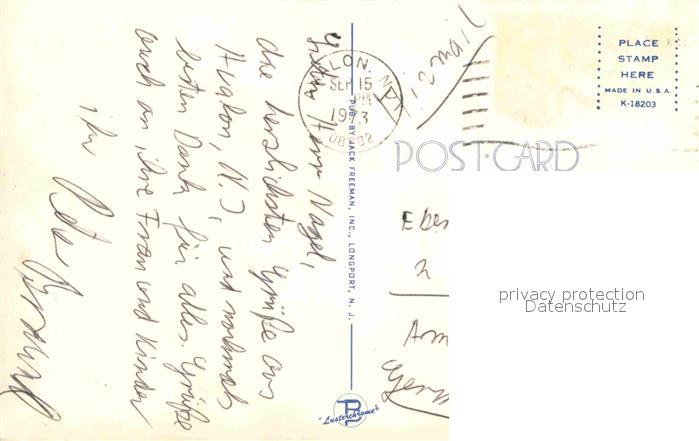 Lieber Herr Nagel,
die herzlichsten Grüße aus
Avalon, N.J, und nochmals
besten Dank für alles. Grüße
auch an ihre Frau und Kinder
ihr
LON, N.J.
SEP 15
PM
1973
08202
Air mail
PLACE
STAMP
HERE
MADE IN U.S.A.
K-18203
POST CARD
PUB. BY JACK FREEMAN, INC., LONGPORT, N. J.
"Lusterchrome"
Eber
2
Am
Germ
privacy protection
Datenschutz